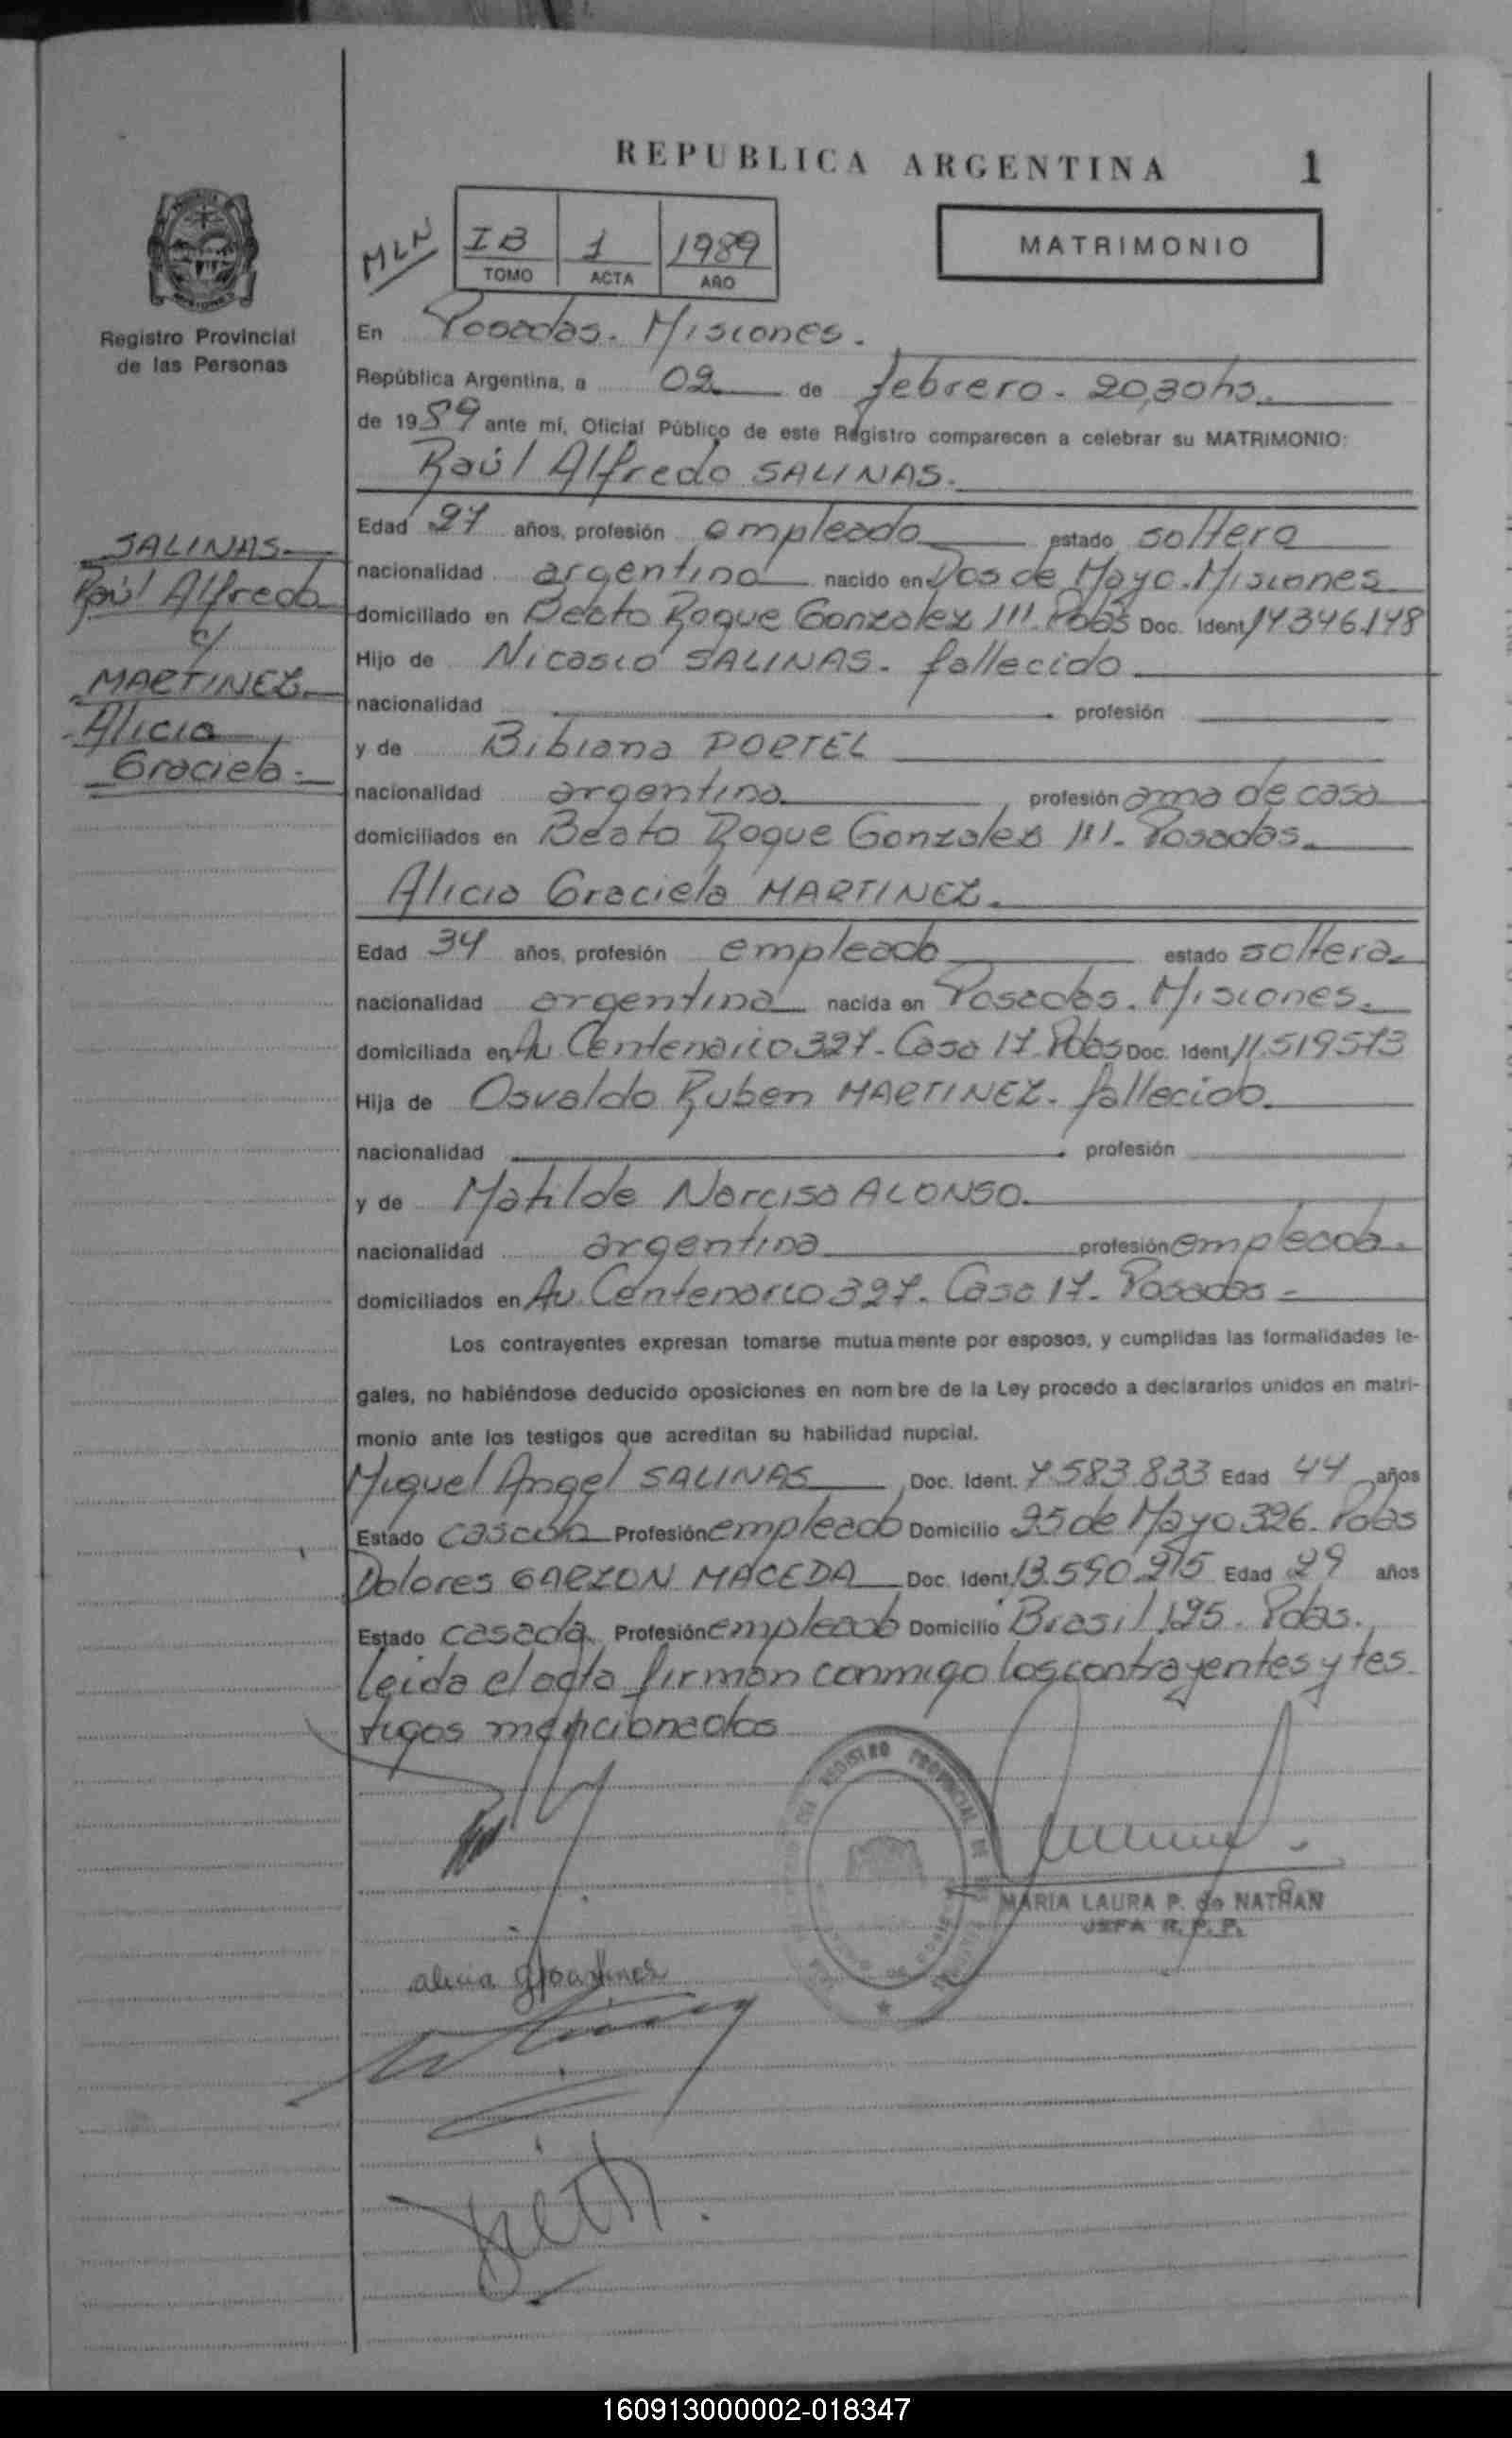 REPUBLICA ARGENTINA 1
MLN
IB 1 1989
TOMO ACTA AÑO
MATRIMONIO
Registro Provincial
de las Personas
SALINAS
Raúl Alfredo
c/
MARTINEZ
Alicia
Graciela.-
En Posadas. Misiones.
República Argentina, a 02 de febrero - 20,30hs.
de 1989 ante mí, Oficial Público de este Registro comparecen a celebrar su MATRIMONIO:
Raúl Alfredo SALINAS.
Edad 27 años, profesión empleado estado soltero
nacionalidad argentina nacido en Dos de Mayo. Misiones
domiciliado en Beato Roque Gonzalez 111. Pdas Doc. Ident. 14346.148
Hijo de Nicasio SALINAS. fallecido
nacionalidad profesión
y de Bibiana PORTEL
nacionalidad argentina profesión ama de casa
domiciliados en Beato Roque Gonzalez 111. Posadas.
Alicia Graciela MARTINEZ.
Edad 34 años, profesión empleada estado soltera
nacionalidad argentina nacida en Posadas. Misiones.
domiciliada en Av Centenario 327. Casa 17. Pdas Doc. Ident. 11.519573
Hija de Osvaldo Ruben MARTINEZ. fallecido.
nacionalidad profesión
y de Matilde Narcisa ALONSO.
nacionalidad argentina profesión empleada.
domiciliados en Av. Centenario 327. Casa 17. Posadas -
Los contrayentes expresan tomarse mutuamente por esposos, y cumplidas las formalidades le-
gales, no habiéndose deducido oposiciones en nombre de la Ley procedo a declararlos unidos en matri-
monio ante los testigos que acreditan su habilidad nupcial.
Miguel Angel SALINAS Doc. Ident. 7.583.833 Edad 44 años
Estado casado Profesión empleado Domicilio 25 de Mayo 326. Pdas
Dolores GARZON MACEDA Doc. Ident. 13.590.215 Edad 29 años
Estado casada Profesión empleada Domicilio Brasil 195. Pdas.
leida el acta firman conmigo los contrayentes y tes
tigos mencionados
REGISTRO PROVINCIAL DE LAS
MARIA LAURA P. de NATHAN
JEFA R. P. P.
alicia g martinez
160913000002-018347